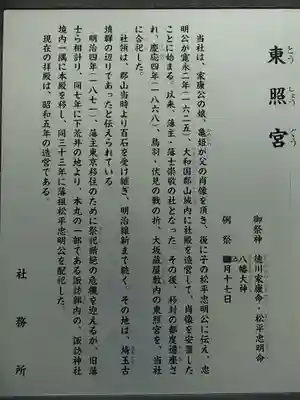 とう しょう ぐう
東照宮
御祭神 徳川家康命・松平忠明命
八幡大神
例祭 月十七日
当社は、家康公の娘、亀姫が父の肖像を頂き、後に子の松平忠明公に伝え、忠
明公が寛永二年(一六二五)、大和国郡山城内に社殿を造営して、肖像を安置した
ことに始まる。以来、藩主・藩士崇敬の社となった。その後、移封の都度遷座さ
れ、慶応四年(一八六八)、鳥羽・伏見の戦の折、大坂蔵屋敷内の東照宮を、当社
に合祀した。
社領は、郡山当時より百石を受け継ぎ、明治維新まで続く。その地は、埼玉古
墳群の辺りであったと伝えられている
明治四年(一八七一)、藩主東京移住のために祭祀断絶の危機を迎えるが、旧藩
士ら相計り、同七年に下荒井の地より、本丸の一部である諏訪郭内の、諏訪神社
境内一隅に本殿を移し、同三十三年に藩祖松平忠明公を配祀した。
現在の拝殿は、昭和五年の造営である。
社務所